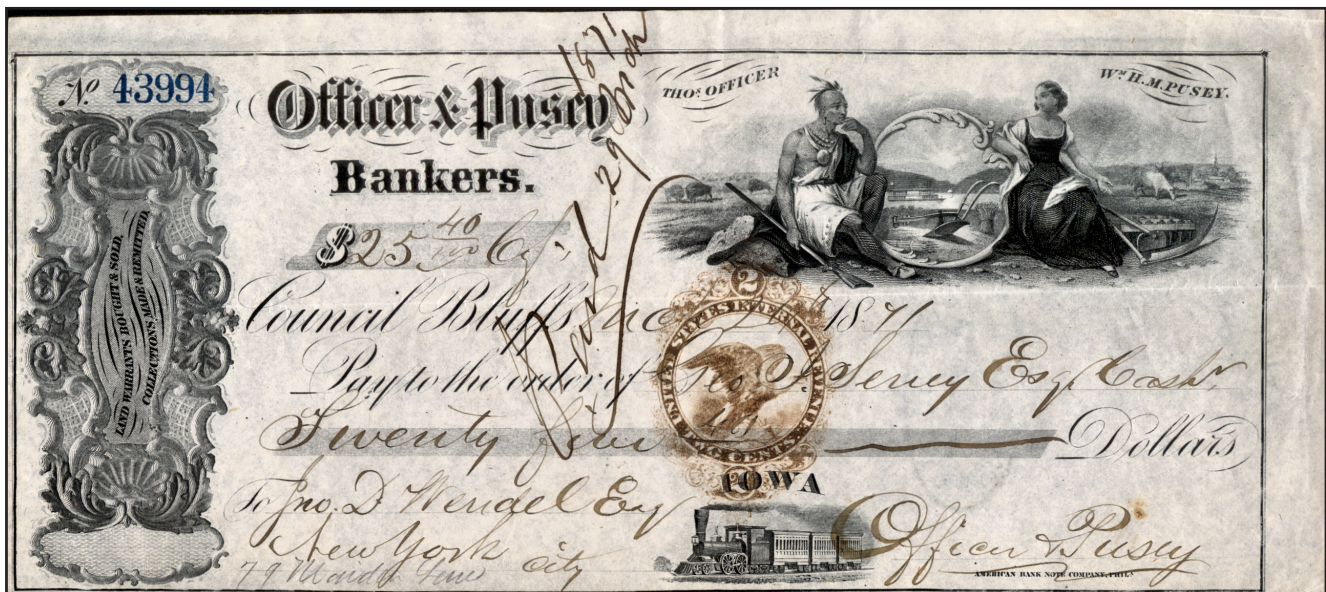 No 43994
Officer & Pusey
Bankers.
THOS. OFFICER
WM. H. M. PUSEY.
LAND WARRANTS BOUGHT & SOLD,
COLLECTIONS MADE & REMITTED.
$25 40/100
29 1871
Council Bluffs, 1871
Pay to the order of Seney Esq Cashr
Twenty five Dollars
2
UNITED STATES INTERNAL REVENUE
CENTS
IOWA
To Jno. D Wendel Esq
New York
city
79 Maiden Lane
Officer & Pusey
AMERICAN BANK NOTE COMPANY, PHILA